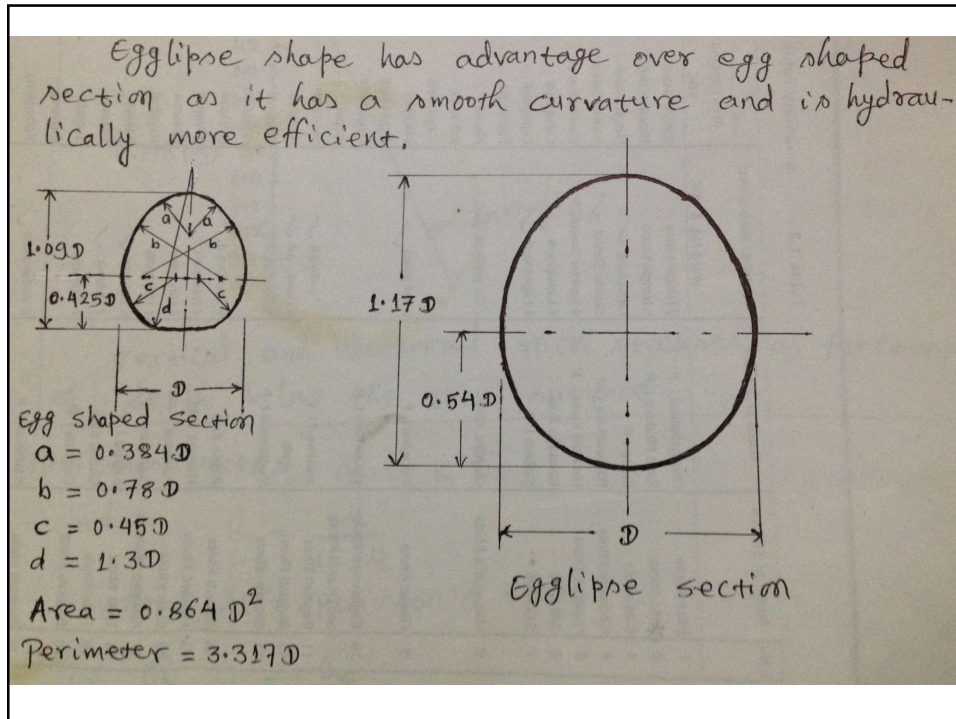 Egglipse shape has advantage over egg shaped
section as it has a smooth curvature and is hydrau-
lically more efficient.
a a
b b
1.09D
c c
0.425D
d
D
Egg shaped section
a = 0.384D
b = 0.78D
c = 0.45D
d = 1.3D
Area = 0.864 D²
Perimeter = 3.317D
1.17D
0.54D
D
Egglipse section